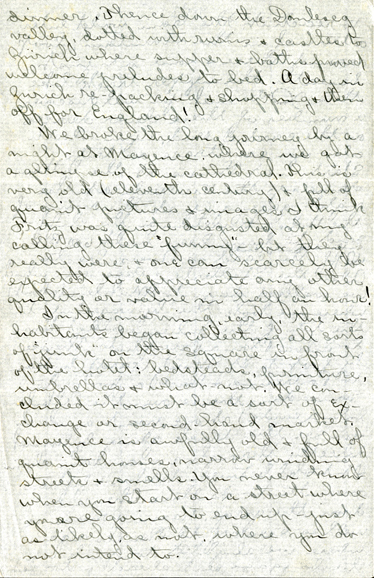 dinner. Thence down the Danleseg
valley, dotted with ruins + castles to
Zurich where supper + baths proved
welcome preludes to bed. A day in
Zurich re-packing + shopping + then
off for England!
We broke the long journey by a
night at Mayence, where we got
a glimpse of the cathedral. This is
very old (eleventh century) + full of
quaint pictures + images. I think
Fritz was quite disgusted at my
calling these "funny" - but they
really were + one can scarcely be
expected to appreciate any other
quality or value in half an hour!
In the morning, early, the in-
habitants began collecting all sorts
of "junk" on the square in front
of the hotel: bedsteads, furniture,
umbrellas + what not. We con-
cluded it must be a sort of ex-
change or second hand market.
Mayence is awfully old + full of
quaint houses, narrow winding
streets + smells. You never know
when you start on a street where
you are going to end up - just
as likely as not, where you do
not intend to.